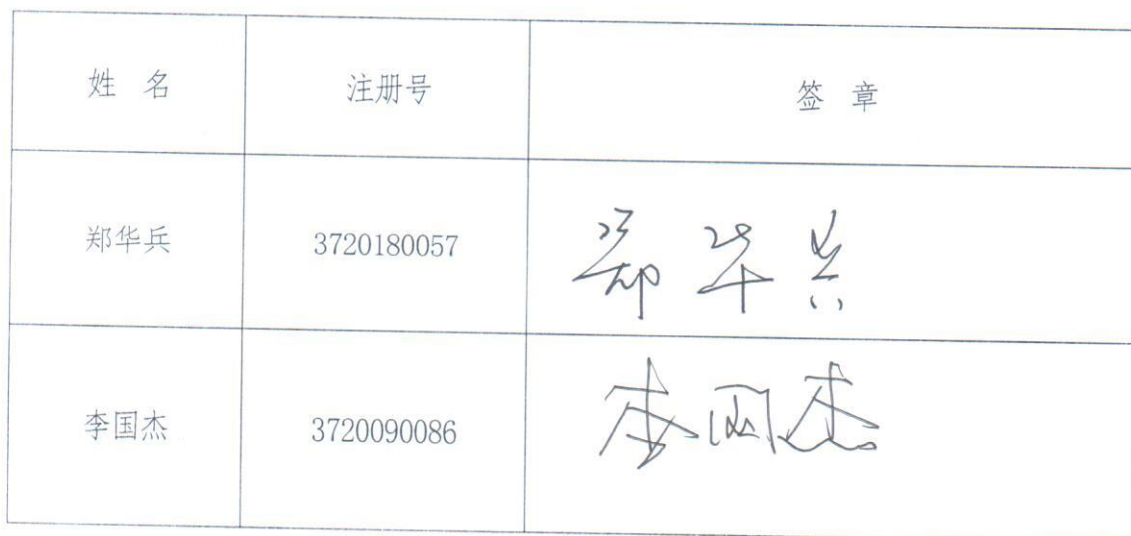 姓 名 注册号 签 章
郑华兵 3720180057 郑华兵
李国杰 3720090086 李国杰